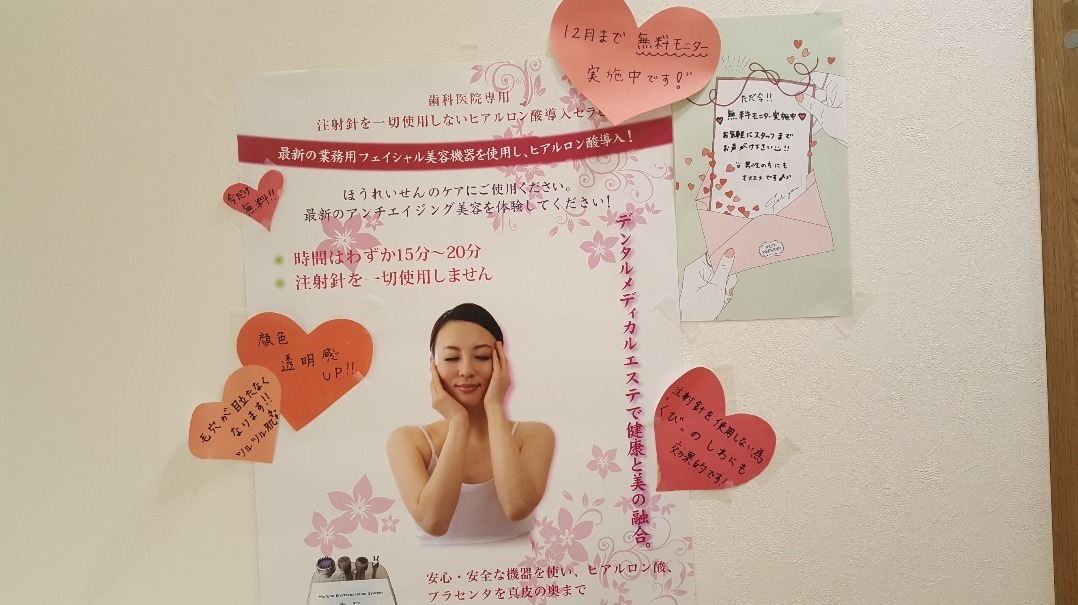 12月まで 無料モニター
実施中です!
ただ今!!
無料モニター実施中
お気軽にスタッフまで
お声がけ下さい!!
男性の方にも
オススメです
歯科医院専用
注射針を一切使用しないヒアルロン酸導入セラ
最新の業務用フェイシャル美容機器を使用し、ヒアルロン酸導入!
今だけ
無料!!
ほうれいせんのケアにご使用ください。
最新のアンチエイジング美容を体験してください!
時間はわずか15分〜20分
注射針を一切使用しません
デンタルメディカルエステで健康と美の融合。
顔色
透明感
UP!!
毛穴が目立たなく
なります!!
ツルツル肌
注射針を使用しない為
"くび"のしわにも
効果的です!
安心・安全な機器を使い、ヒアルロン酸、
プラセンタを真皮の奥まで